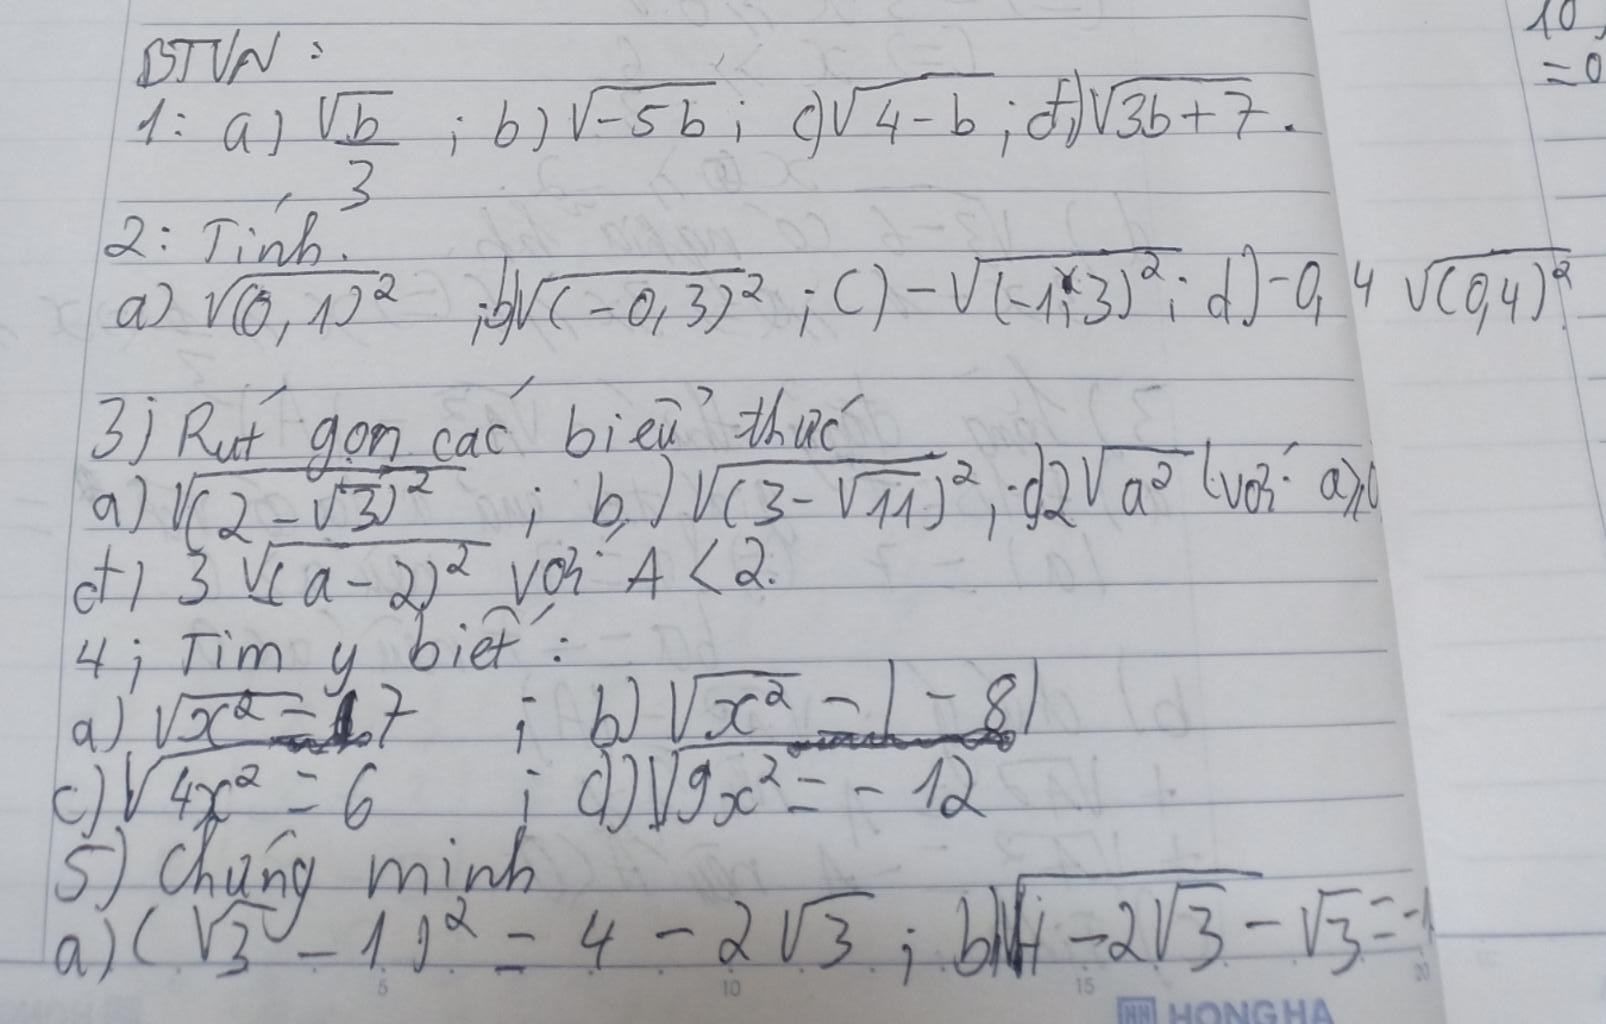 10,
= 0
BTVN :
1: a) √b/3 ; b) √-5b ; c) √4-b ; d) √3b+7 .
2: Tính.
a) √(0,1)² ; b) √(-0,3)² ; c) -√(-1,3)² ; d) -0,4 √(0,4)²
3) Rút gọn các biểu thức
a) √(2-√3)² ; b,) √(3-√11)² ; c) 2√a² (với a≥0
d) 3 √(a-2)² với A < 2.
4; Tìm y biết :
a) √x² = 7 ; b) √x² = |-8|
c) √4x² = 6 ; d) √9x² = -12
5) Chứng minh
a) (√3 - 1)² = 4 - 2√3 ; b) √4-2√3 - √3 = -1
5 10 15 20
HH HONG HA